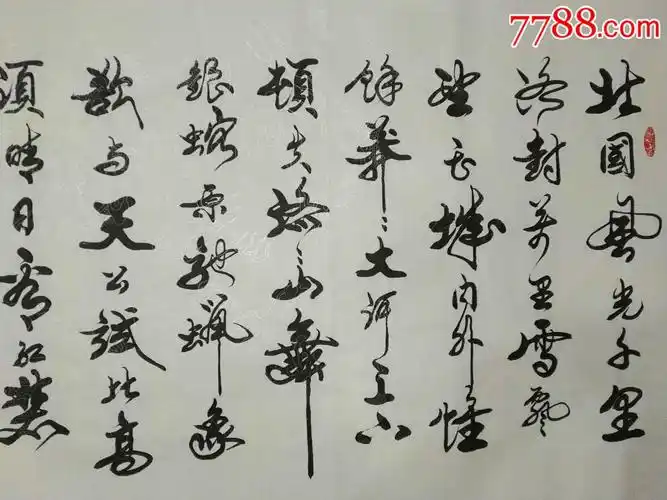 7788.com
北國風光千里
冰封万里雪飄
望长城内外惟
餘莽〻大河上下
頓失滔〻山舞
銀蛇原馳蠟象
欲与天公試比高
須晴日看紅裝